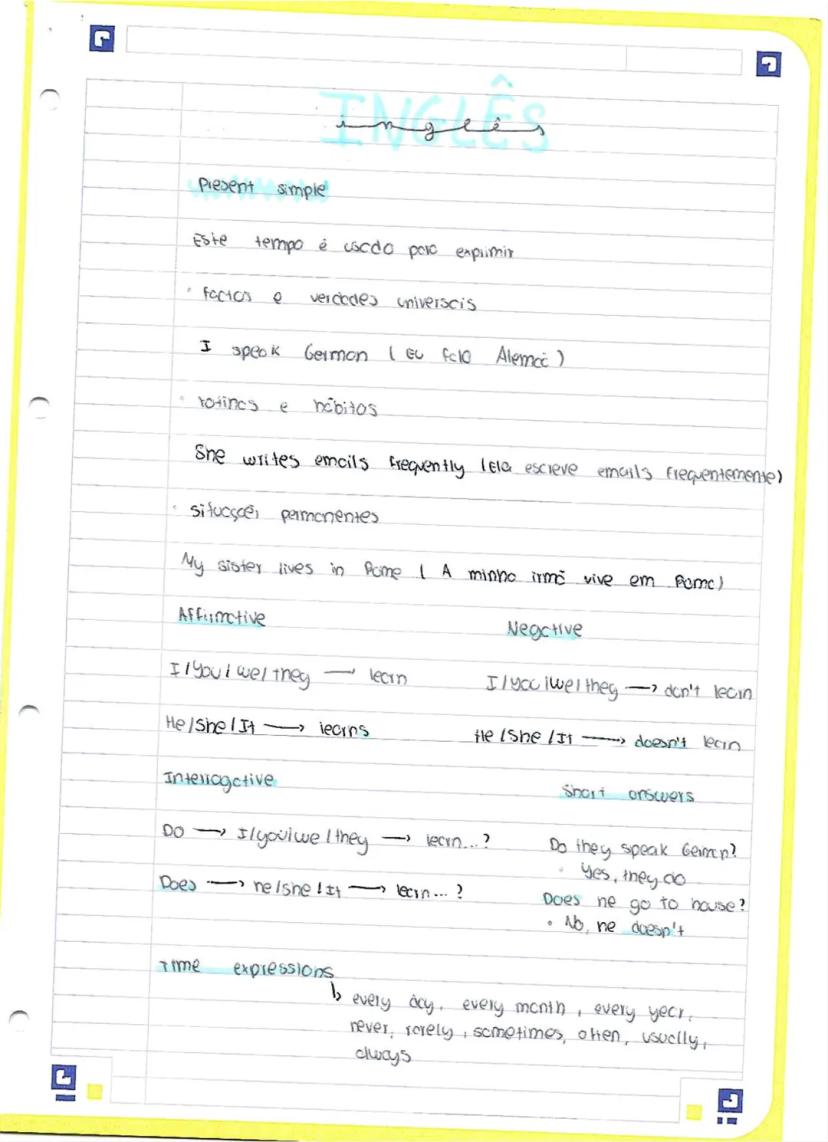 INGLÊS
inglês
Present simple
Este tempo é usado para exprimir
· factos e verdades universais
I speak German ( Eu falo Alemão )
· rotinas e hábitos
She writes emails frequently (Ela escreve emails frequentemente)
· situações permanentes
My sister lives in Rome ( A minha irmã vive em Roma)
Affirmative Negative
I/You/we/they → learn I/you/we/they → don't learn
He/She/It → learns He/She/It → doesn't learn
Interrogative Short answers
Do → I/you/we/they → learn...? Do they speak German?
· Yes, they do
Does → he/she/It → learn...? Does he go to house?
· No, he doesn't
Time expressions
↳ every day, every month, every year,
never, rarely, sometimes, often, usually,
always